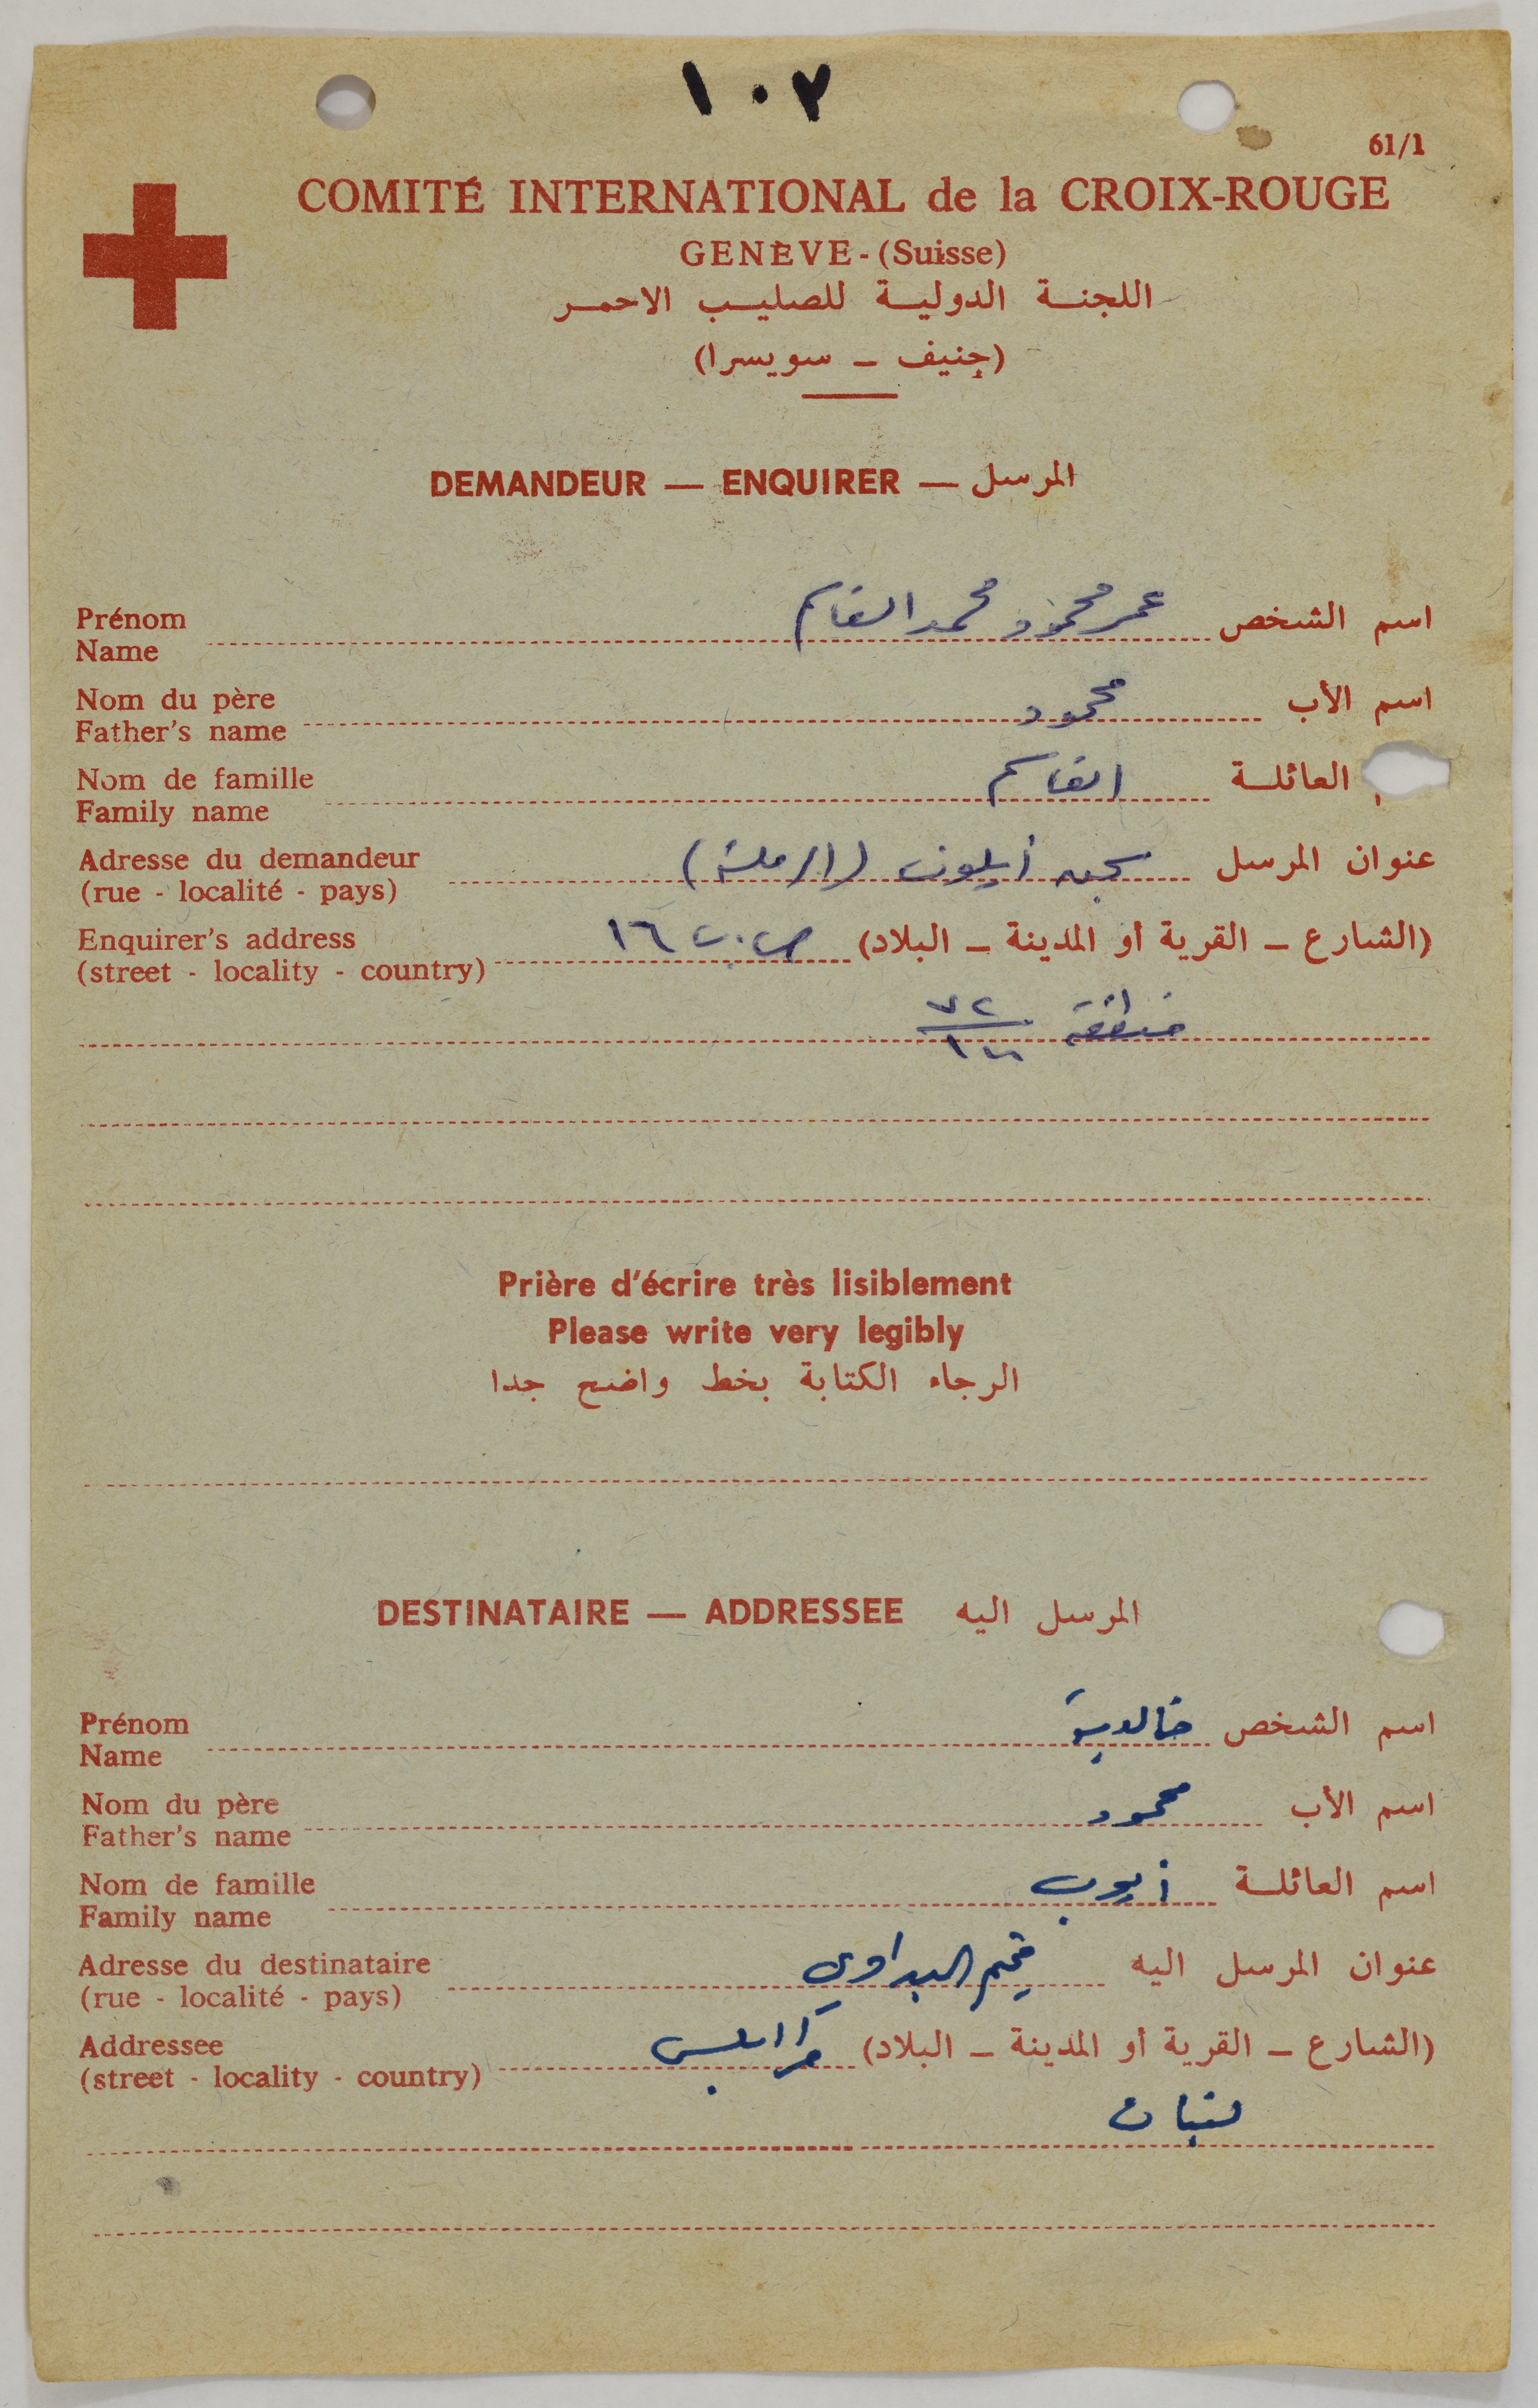 ١٠٧
61/1
COMITÉ INTERNATIONAL de la CROIX-ROUGE
GENÈVE - (Suisse)
اللجنة الدولية للصليب الاحمر
(جنيف - سويسرا)
DEMANDEUR — ENQUIRER — المرسل
Prénom
Name
اسم الشخص عمر محمود محمد القاسم
Nom du père
Father's name
اسم الأب محمود
Nom de famille
Family name
العائلة القاسم
Adresse du demandeur
(rue - localité - pays)
عنوان المرسل سجن أيلون (الرملة)
Enquirer's address
(street - locality - country)
(الشارع - القرية أو المدينة - البلاد) ص.ب ١٦
Prière d'écrire très lisiblement
Please write very legibly
الرجاء الكتابة بخط واضح جدا
DESTINATAIRE — ADDRESSEE المرسل اليه
Prénom
Name
اسم الشخص خالدية
Nom du père
Father's name
اسم الأب محمود
Nom de famille
Family name
اسم العائلة أيوب
Adresse du destinataire
(rue - localité - pays)
عنوان المرسل اليه مخيم البداوي
Addressee
(street - locality - country)
(الشارع - القرية أو المدينة - البلاد) طرابلس
لبنان